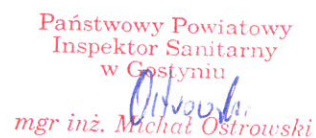 Państwowy Powiatowy
Inspektor Sanitarny
w Gostyniu
mgr inż. Michał Ostrowski